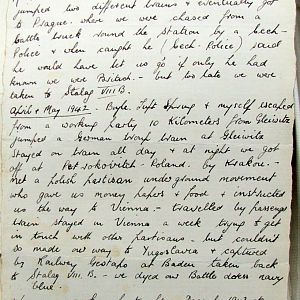 jumped two different trains & eventually got
to Prague. when we were chased from a
Battle truck round the Station by a Czech-
Police & when caught he (Czech-Police) said
he would have let us go if only he had
known we were British. - but too late we were
taken to Stalag VIII B.
April & May 1942 - Boyle, Spring & myself escaped
from a working party 10 kilometers from Gleiwitz
jumped a German troop train at Gleiwitz
Stayed on train all day & at night we got
off at - Poland. by Krakow. -
Met a polish partisan underground movement
who gave us money papers & food & instructed
us the way to Vienna - travelled by passenger
train stayed in Vienna a week trying to get
in touch with other partisans - but couldn't
so made our way to Yugoslavia & captured
by Railway Gestapo at Baden taken back
to Stalag VIII. B. - we dyed our Battle dress navy
blue.